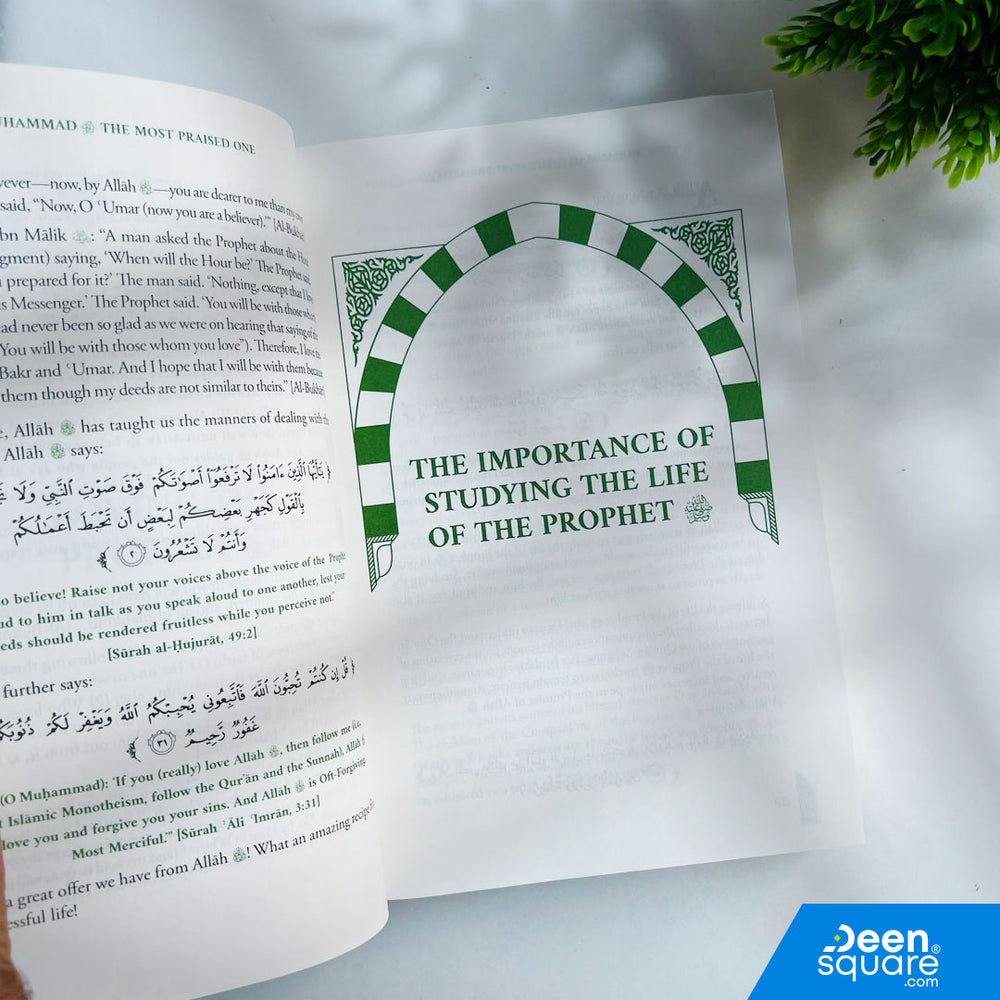 UHAMMAD ﷺ THE MOST PRAISED ONE
ever—now, by Allāh —you are dearer to me than my own
said, “Now, O ʿUmar (now you are a believer).” [Al-Bukhārī]
bn Mālik : “A man asked the Prophet about the Hour
gment) saying, ‘When will the Hour be?’ The Prophet said
prepared for it?’ The man said. ‘Nothing, except that I love
s Messenger.’ The Prophet said. ‘You will be with those whom
ad never been so glad as we were on hearing that saying of the
You will be with those whom you love”). Therefore, I love the
Bakr and ʿUmar. And I hope that I will be with them because
them though my deeds are not similar to theirs.” [Al-Bukhārī]
, Allāh has taught us the manners of dealing with the
Allāh says:
﴿ يَٰٓأَيُّهَا ٱلَّذِينَ ءَامَنُوا۟ لَا تَرْفَعُوٓا۟ أَصْوَٰتَكُمْ فَوْقَ صَوْتِ ٱلنَّبِىِّ وَلَا
بِٱلْقَوْلِ كَجَهْرِ بَعْضِكُمْ لِبَعْضٍ أَن تَحْبَطَ أَعْمَٰلُكُمْ
وَأَنتُمْ لَا تَشْعُرُونَ ۝٢ ﴾
o believe! Raise not your voices above the voice of the Prophet
ud to him in talk as you speak aloud to one another, lest your
eeds should be rendered fruitless while you perceive not.”
[Sūrah al-Ḥujurāt, 49:2]
further says:
﴿ قُلْ إِن كُنتُمْ تُحِبُّونَ ٱللَّهَ فَٱتَّبِعُونِى يُحْبِبْكُمُ ٱللَّهُ وَيَغْفِرْ لَكُمْ ذُنُوبَكُمْ
غَفُورٌ رَّحِيمٌ ۝٣١ ﴾
(O Muḥammad): ‘If you (really) love Allāh , then follow me (i.e.
t Islāmic Monotheism, follow the Qurʾān and the Sunnah), Allāh
love you and forgive you your sins. And Allāh is Oft-Forgiving,
Most Merciful.’” [Sūrah ʾĀli ʿImrān, 3:31]
a great offer we have from Allāh ! What an amazing recipe
essful life!
THE IMPORTANCE OF
STUDYING THE LIFE
OF THE PROPHET ﷺ
Deen
square®
.com